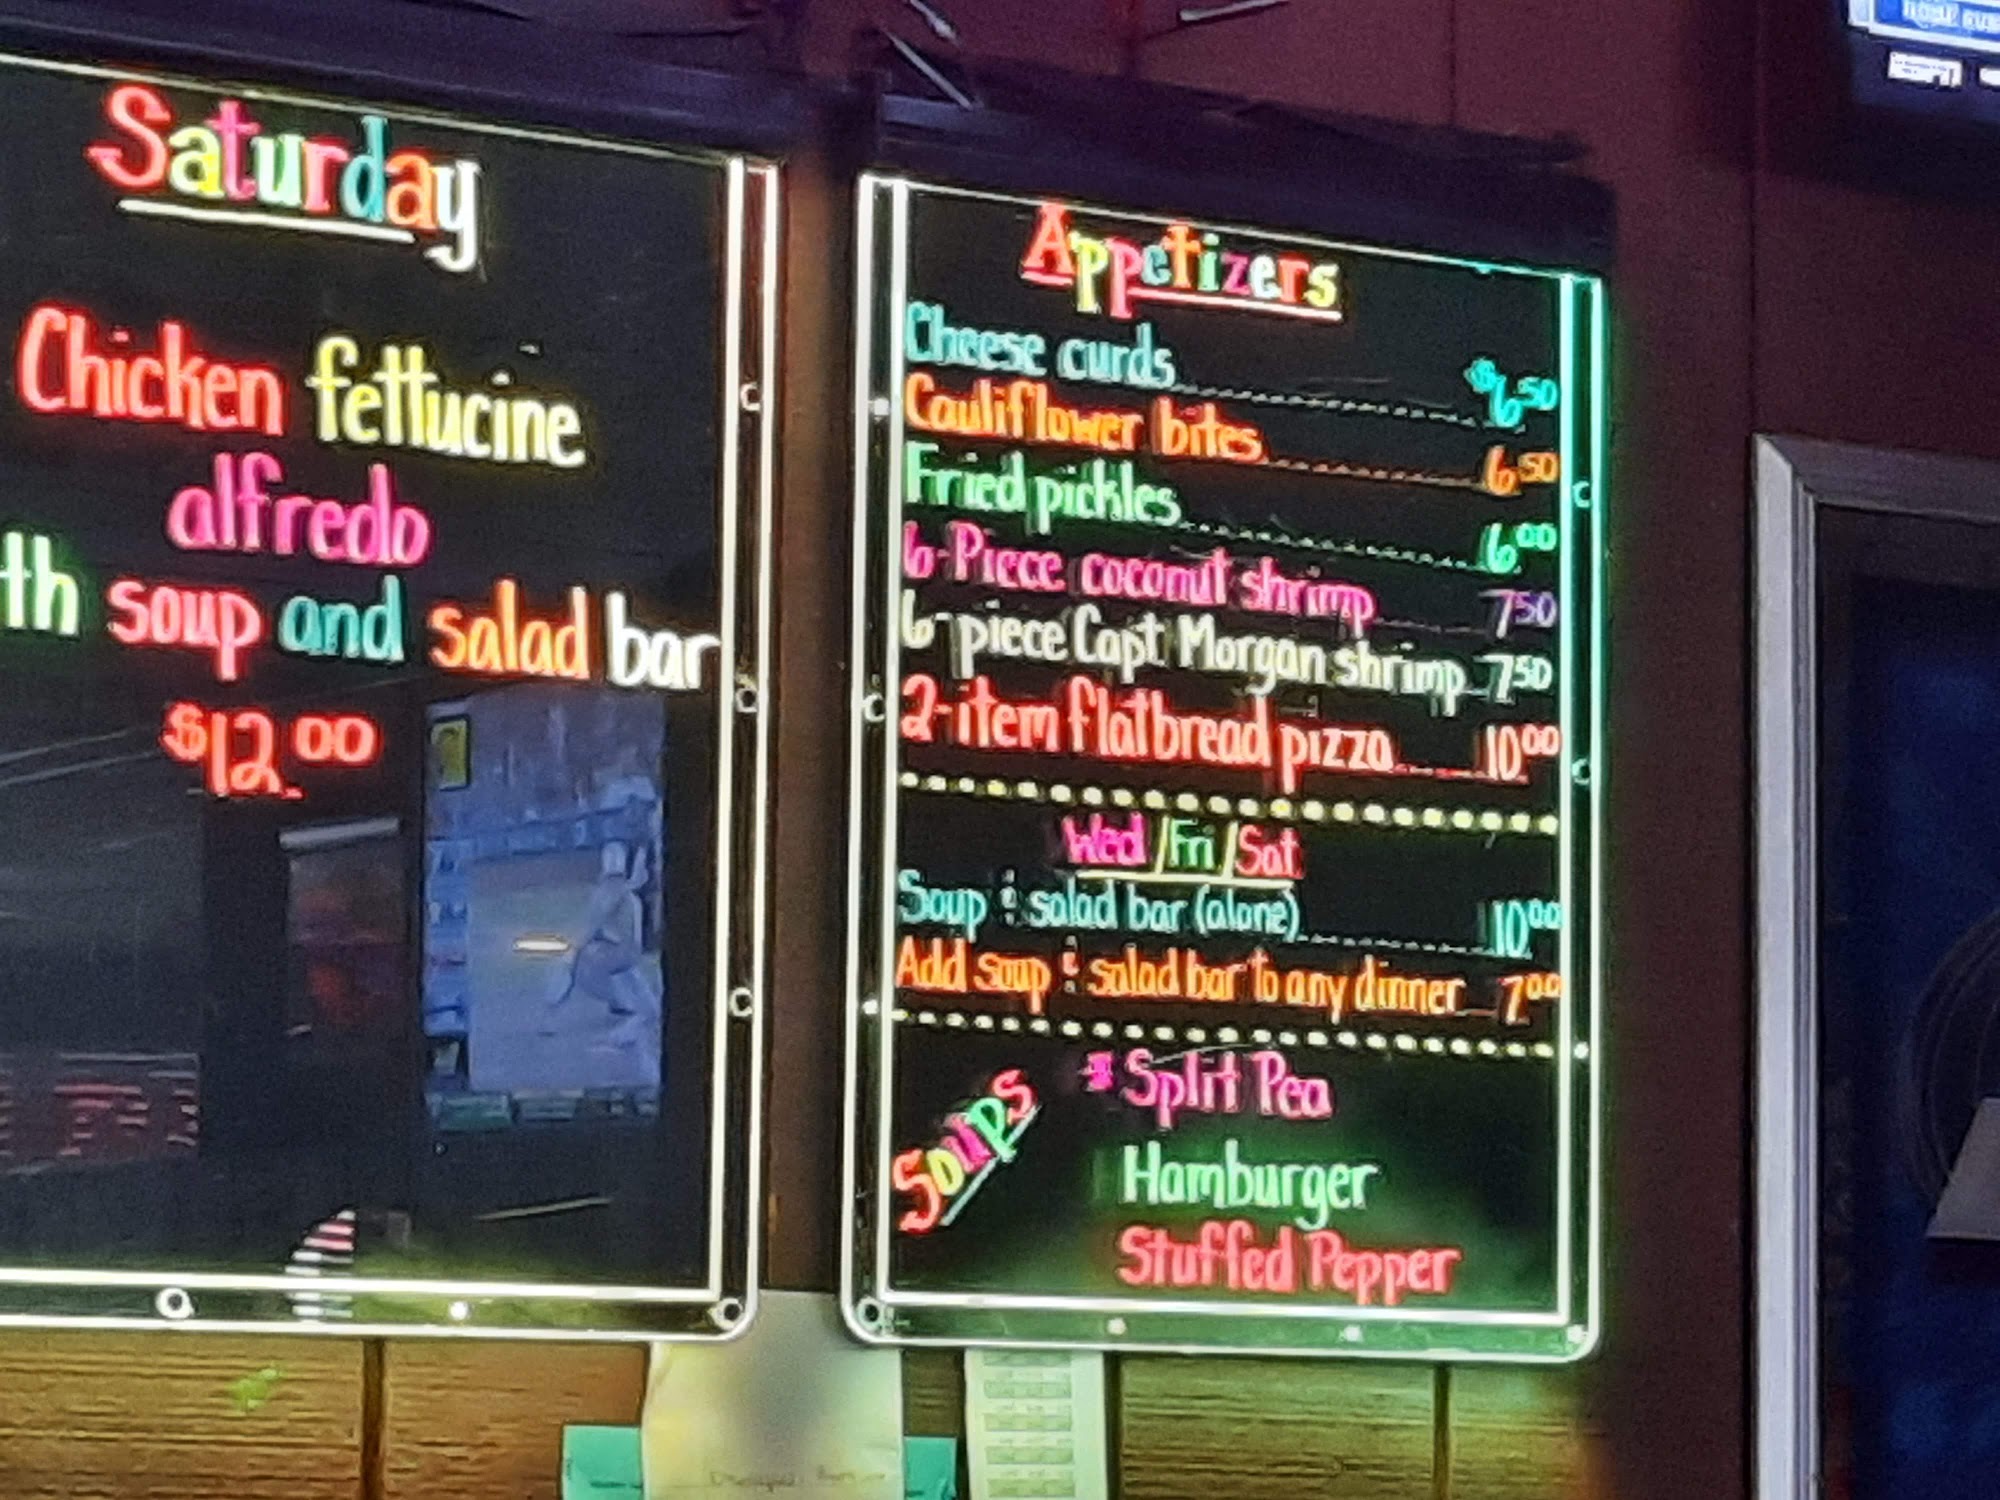 Saturday
Chicken fettucine
alfredo
th soup and salad bar
$12.00
Appetizers
Cheese curds $6.50
Cauliflower bites 6.50
Fried pickles 6.00
6-Piece coconut shrimp 7.50
6-piece Capt Morgan shrimp 7.50
2-item flatbread pizza 10.00
Wed/Fri/Sat
Soup & salad bar (alone) 10.00
Add soup & salad bar to any dinner 7.00
Soups
* Split Pea
Hamburger
Stuffed Pepper
ESPN